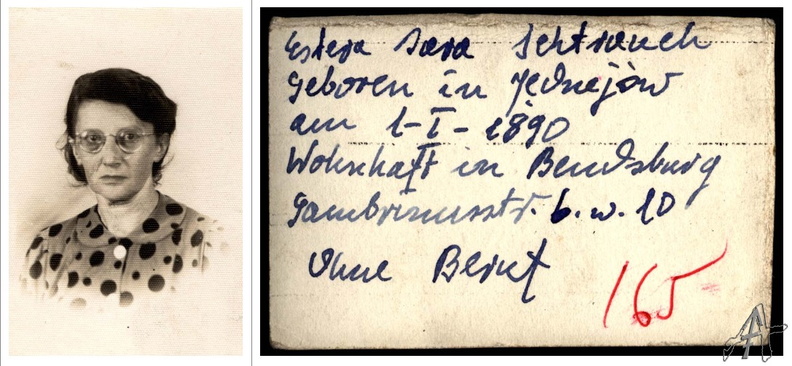 Estera Sara Schtrauch
Geboren in Jędrzejów
am 1-I-1890
Wohnhaft in Bendsburg
Gambrinusstr. 6. w. 10
Ohne Beruf
165